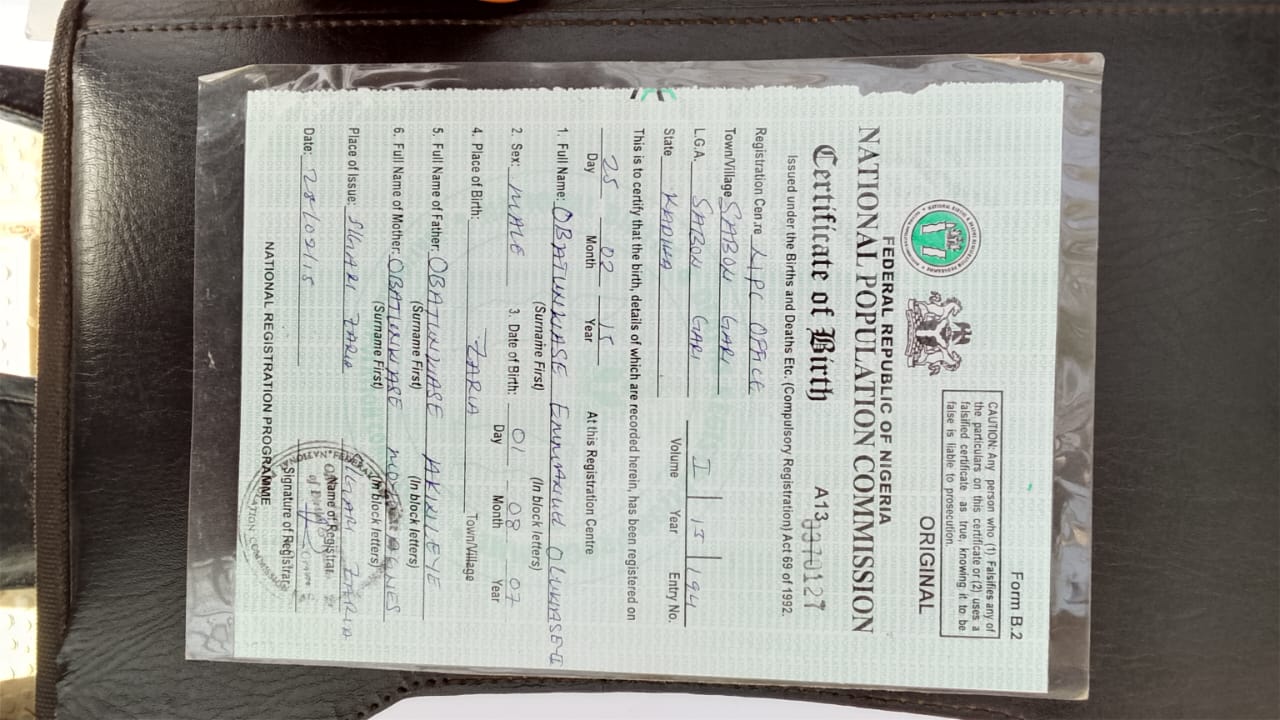 Form B.2
ORIGINAL
CAUTION: Any person who (1) Falsifies any of
the particulars on this certificate or (2) uses a
falsified certificate as true, knowing it to be
false is liable to prosecution.
FEDERAL REPUBLIC OF NIGERIA
NATIONAL POPULATION COMMISSION
Certificate of Birth A13 3370127
Issued under the Births and Deaths Etc. (Compulsory Registration) Act 69 of 1992.
Registration Centre NPC OFFICE
Town/Village SABON GARI
L.G.A. SABON GARI I 15 194
State KADUNA Volume Year Entry No.
This is to certify that the birth, details of which are recorded herein, has been registered on
25 02 15 At this Registration Centre
Day Month Year
1. Full Name: OBATUNWASE EMMANUEL
(Surname First) (In block letters)
2. Sex: MALE 3. Date of Birth: 01 08 07
Day Month Year
4. Place of Birth: ZARIA Town/Village
5. Full Name of Father: OBATUNWASE AKINLEYE
(Surname First) (In block letters)
6. Full Name of Mother: OBATUNWASE AGNES
(Surname First) (In block letters)
Place of Issue: ZARIA ZARIA
Name of Registrar
Date: Signature of Registrar
NATIONAL REGISTRATION PROGRAMME